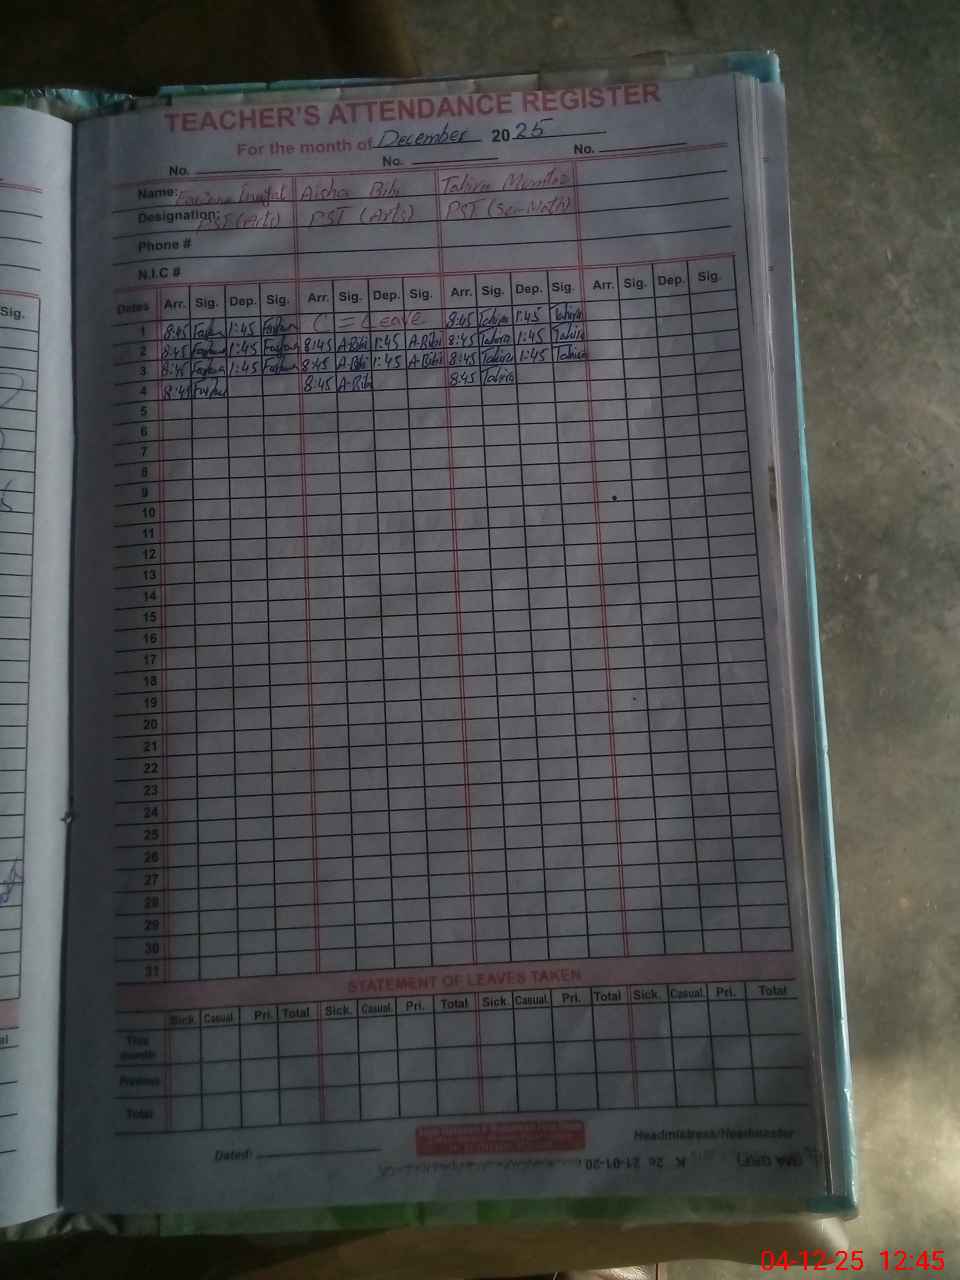 TEACHER'S ATTENDANCE REGISTER
For the month of December 2025
No. No. No.
Name: Aisha Bibi Tahira Mumtaz
Designation: PST (Arts) PST (Arts) PST (Sci-Math)
Phone #
N.I.C #
Dates Arr. Sig. Dep. Sig. Arr. Sig. Dep. Sig. Arr. Sig. Dep. Sig. Arr. Sig. Dep. Sig.
1 8:45 1:45 C = Leave 8:45 Tahira 1:45 Tahira
2 8:45 1:45 8:45 A-Bibi 1:45 A-Bibi 8:45 Tahira 1:45 Tahira
3 8:45 1:45 8:45 A-Bibi 1:45 A-Bibi 8:45 Tahira 1:45 Tahira
4 8:45 8:45 A-Bibi 8:45 Tahira
5
6
7
8
9
10
11
12
13
14
15
16
17
18
19
20
21
22
23
24
25
26
27
28
29
30
31
STATEMENT OF LEAVES TAKEN
Sick. Casual. Pri. Total Sick. Casual. Pri. Total Sick. Casual. Pri. Total Sick. Casual. Pri. Total
This month
Previous
Total
Dated: Headmistress/Headmaster
04-12-25 12:45